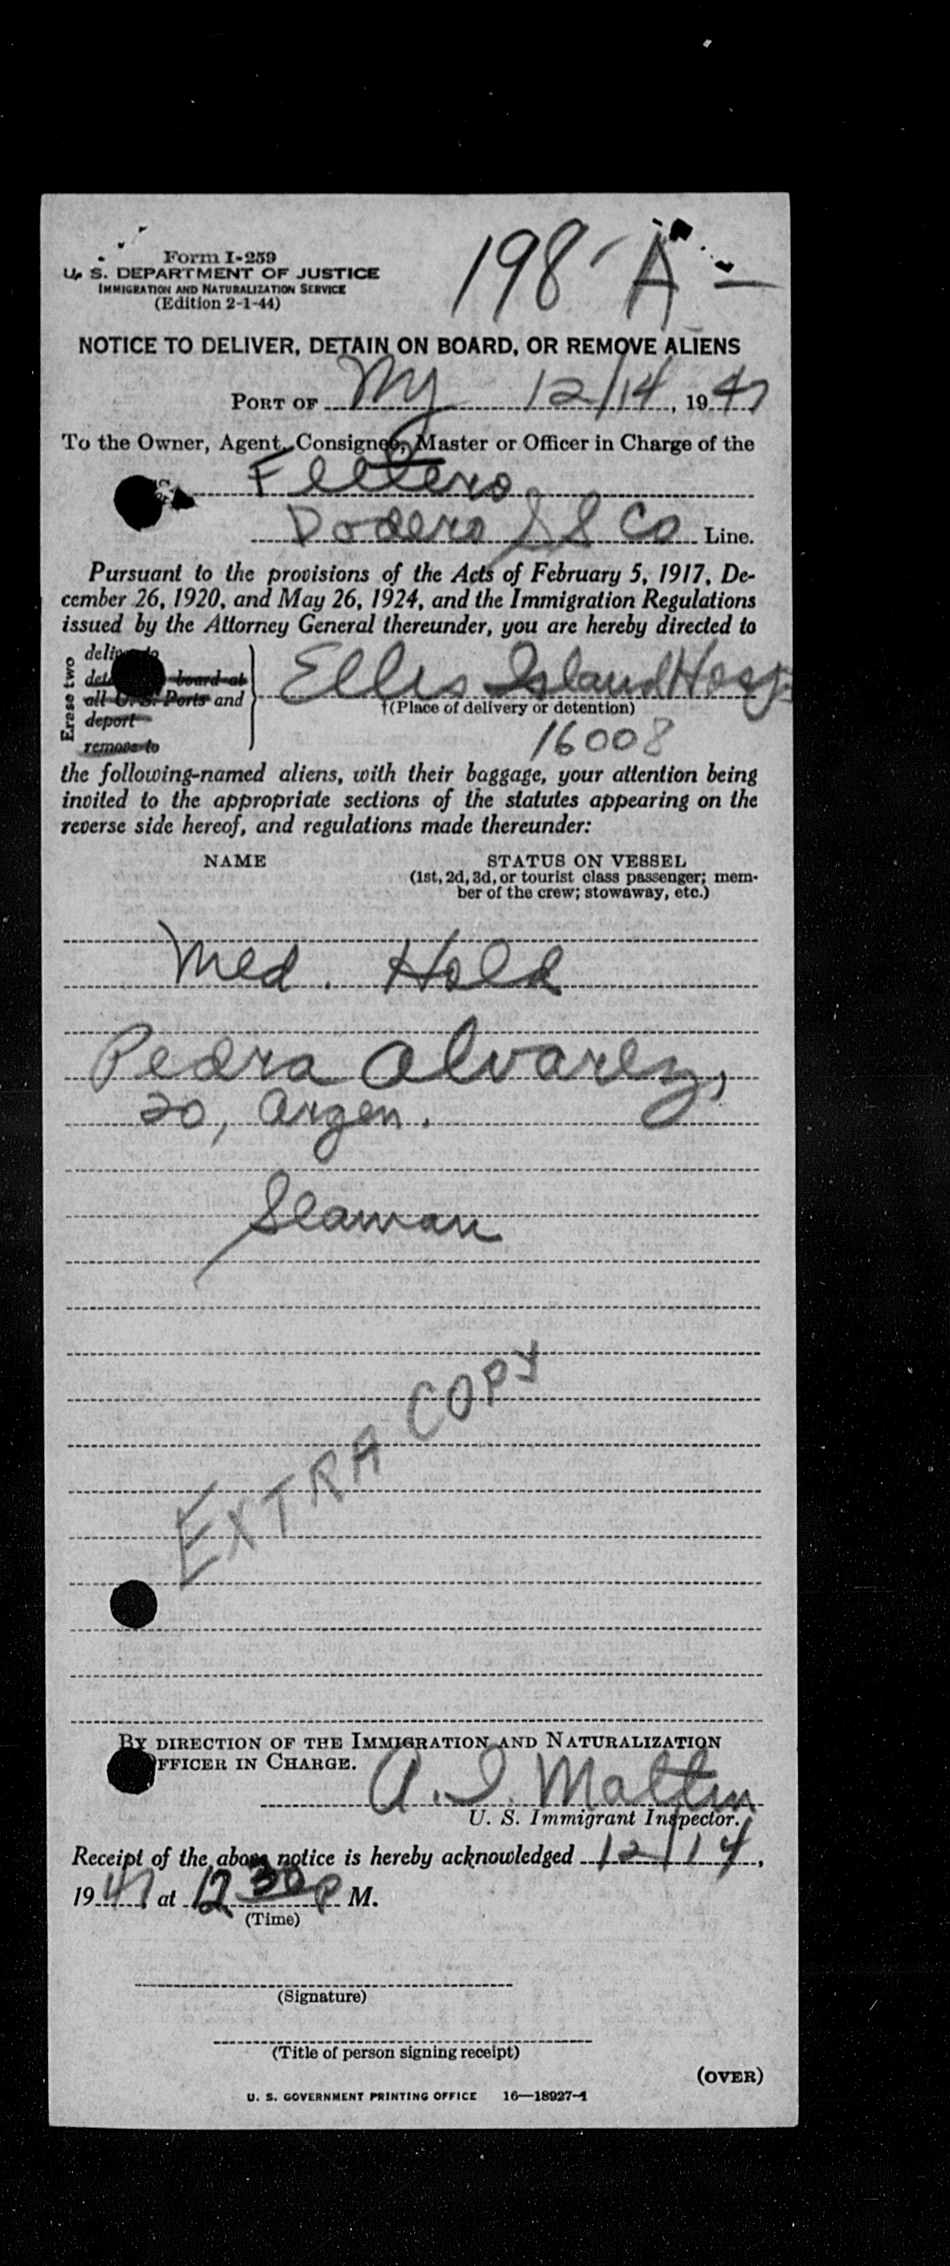 198-A-
Form I-259
U. S. DEPARTMENT OF JUSTICE
IMMIGRATION AND NATURALIZATION SERVICE
(Edition 2-1-44)
NOTICE TO DELIVER, DETAIN ON BOARD, OR REMOVE ALIENS
PORT OF NY 12/14, 1947
To the Owner, Agent, Consignee, Master or Officer in Charge of the
Dodero SS Co Line.
Pursuant to the provisions of the Acts of February 5, 1917, De-
cember 26, 1920, and May 26, 1924, and the Immigration Regulations
issued by the Attorney General thereunder, you are hereby directed to
Erase two
deliver to
board at
all U. S. Ports and
deport
remove to
Ellis Island Hosp.
†(Place of delivery or detention)
16008
the following-named aliens, with their baggage, your attention being
invited to the appropriate sections of the statutes appearing on the
reverse side hereof, and regulations made thereunder:
NAME STATUS ON VESSEL
(1st, 2d, 3d, or tourist class passenger; mem-
ber of the crew; stowaway, etc.)
Med. Hold
Pedra Alvarez,
20, Argen.
Seaman
EXTRA COPY
BY DIRECTION OF THE IMMIGRATION AND NATURALIZATION
OFFICER IN CHARGE.
U. S. Immigrant Inspector.
Receipt of the above notice is hereby acknowledged 12/14,
1947 at 12 30 p M.
(Time)
(Signature)
(Title of person signing receipt)
(OVER)
U. S. GOVERNMENT PRINTING OFFICE 16—18927-1